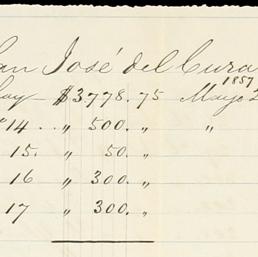 San José del Cura
1857
Hay — $3.778.75 Mayo 2
14 .. " 500. " "
15. " 50. "
16 " 300. "
17 " 300. "